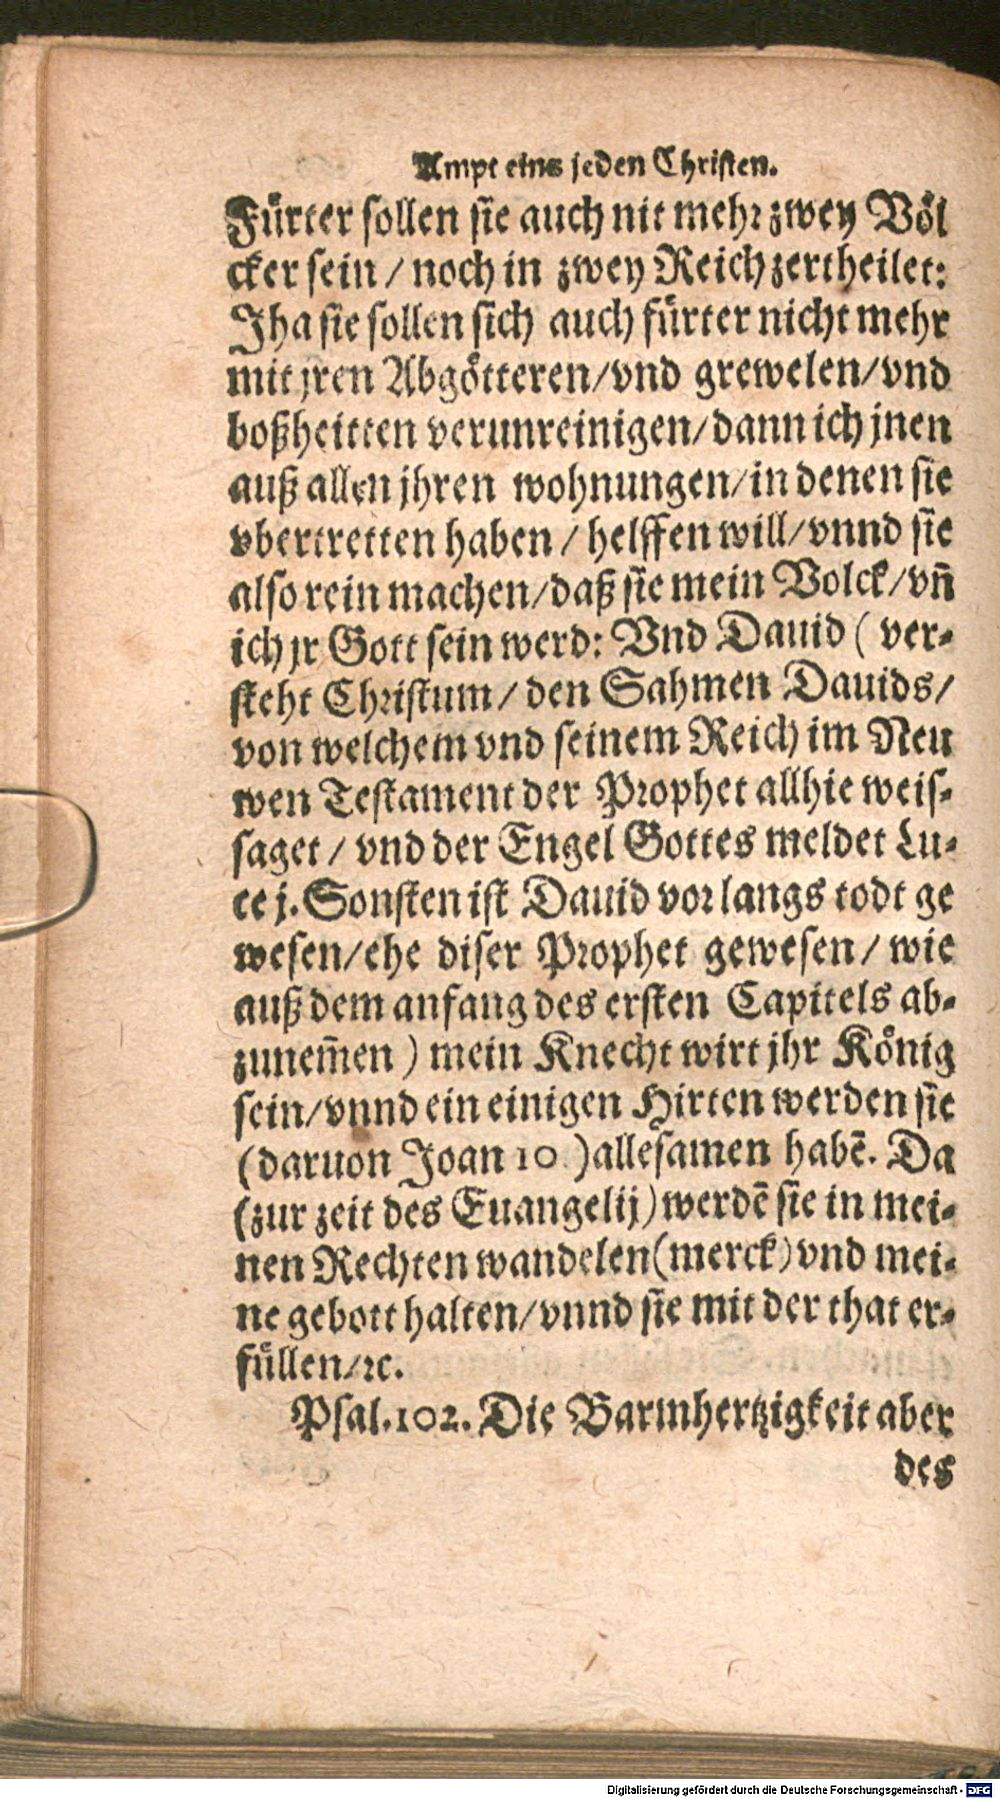 Ampt eins jeden Christen.
Fürter sollen sie auch nit mehr zwey Völ
cker sein / noch in zwey Reich zertheilet:
Jha sie sollen sich auch fürter nicht mehr
mit jren Abgötteren/vnd grewelen/vnd
boßheitten verunreinigen/dann ich jnen
auß allen jhren wohnungen/in denen sie
vbertretten haben / helffen will/vnnd sie
also rein machen/daß sie mein Volck/vñ
ich jr Gott sein werd: Vnd Dauid ( ver-
steht Christum / den Sahmen Dauids/
von welchem vnd seinem Reich im Neu
wen Testament der Prophet allhie weis-
saget / vnd der Engel Gottes meldet Lu-
ce j. Sonsten ist Dauid vor langs todt ge
wesen/ehe diser Prophet gewesen / wie
auß dem anfang des ersten Capitels ab-
zunem̃en ) mein Knecht wirt jhr König
sein/vnnd ein einigen Hirten werden sie
(daruon Joan 10.) allesamen habē. Da
(zur zeit des Euangelij) werdē sie in mei-
nen Rechten wandelen(merck) vnd mei-
ne gebott halten/vnnd sie mit der that er-
füllen/ꝛc.
Psal.102. Die Barmhertzigkeit aber
des
Digitalisierung gefördert durch die Deutsche Forschungsgemeinschaft - DFG